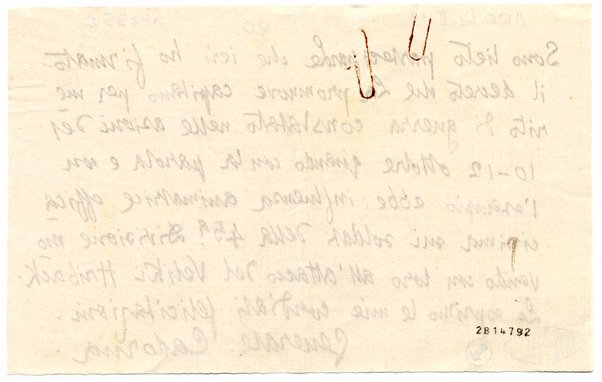 Sono lieto parteciparle che ieri ho firmato
il decreto che La promuove capitano per me
rito di guerra constatato nelle azioni del
10-12 ottobre quando con la parola e con
l'esempio ebbe influenza animatrice effica
cissima sui soldati della 45ª Divisione mo
vendo con loro all'attacco del Veliki Hribach.
Le esprimo le mie cordiali felicitazioni.
Generale Cadorna.
2814792